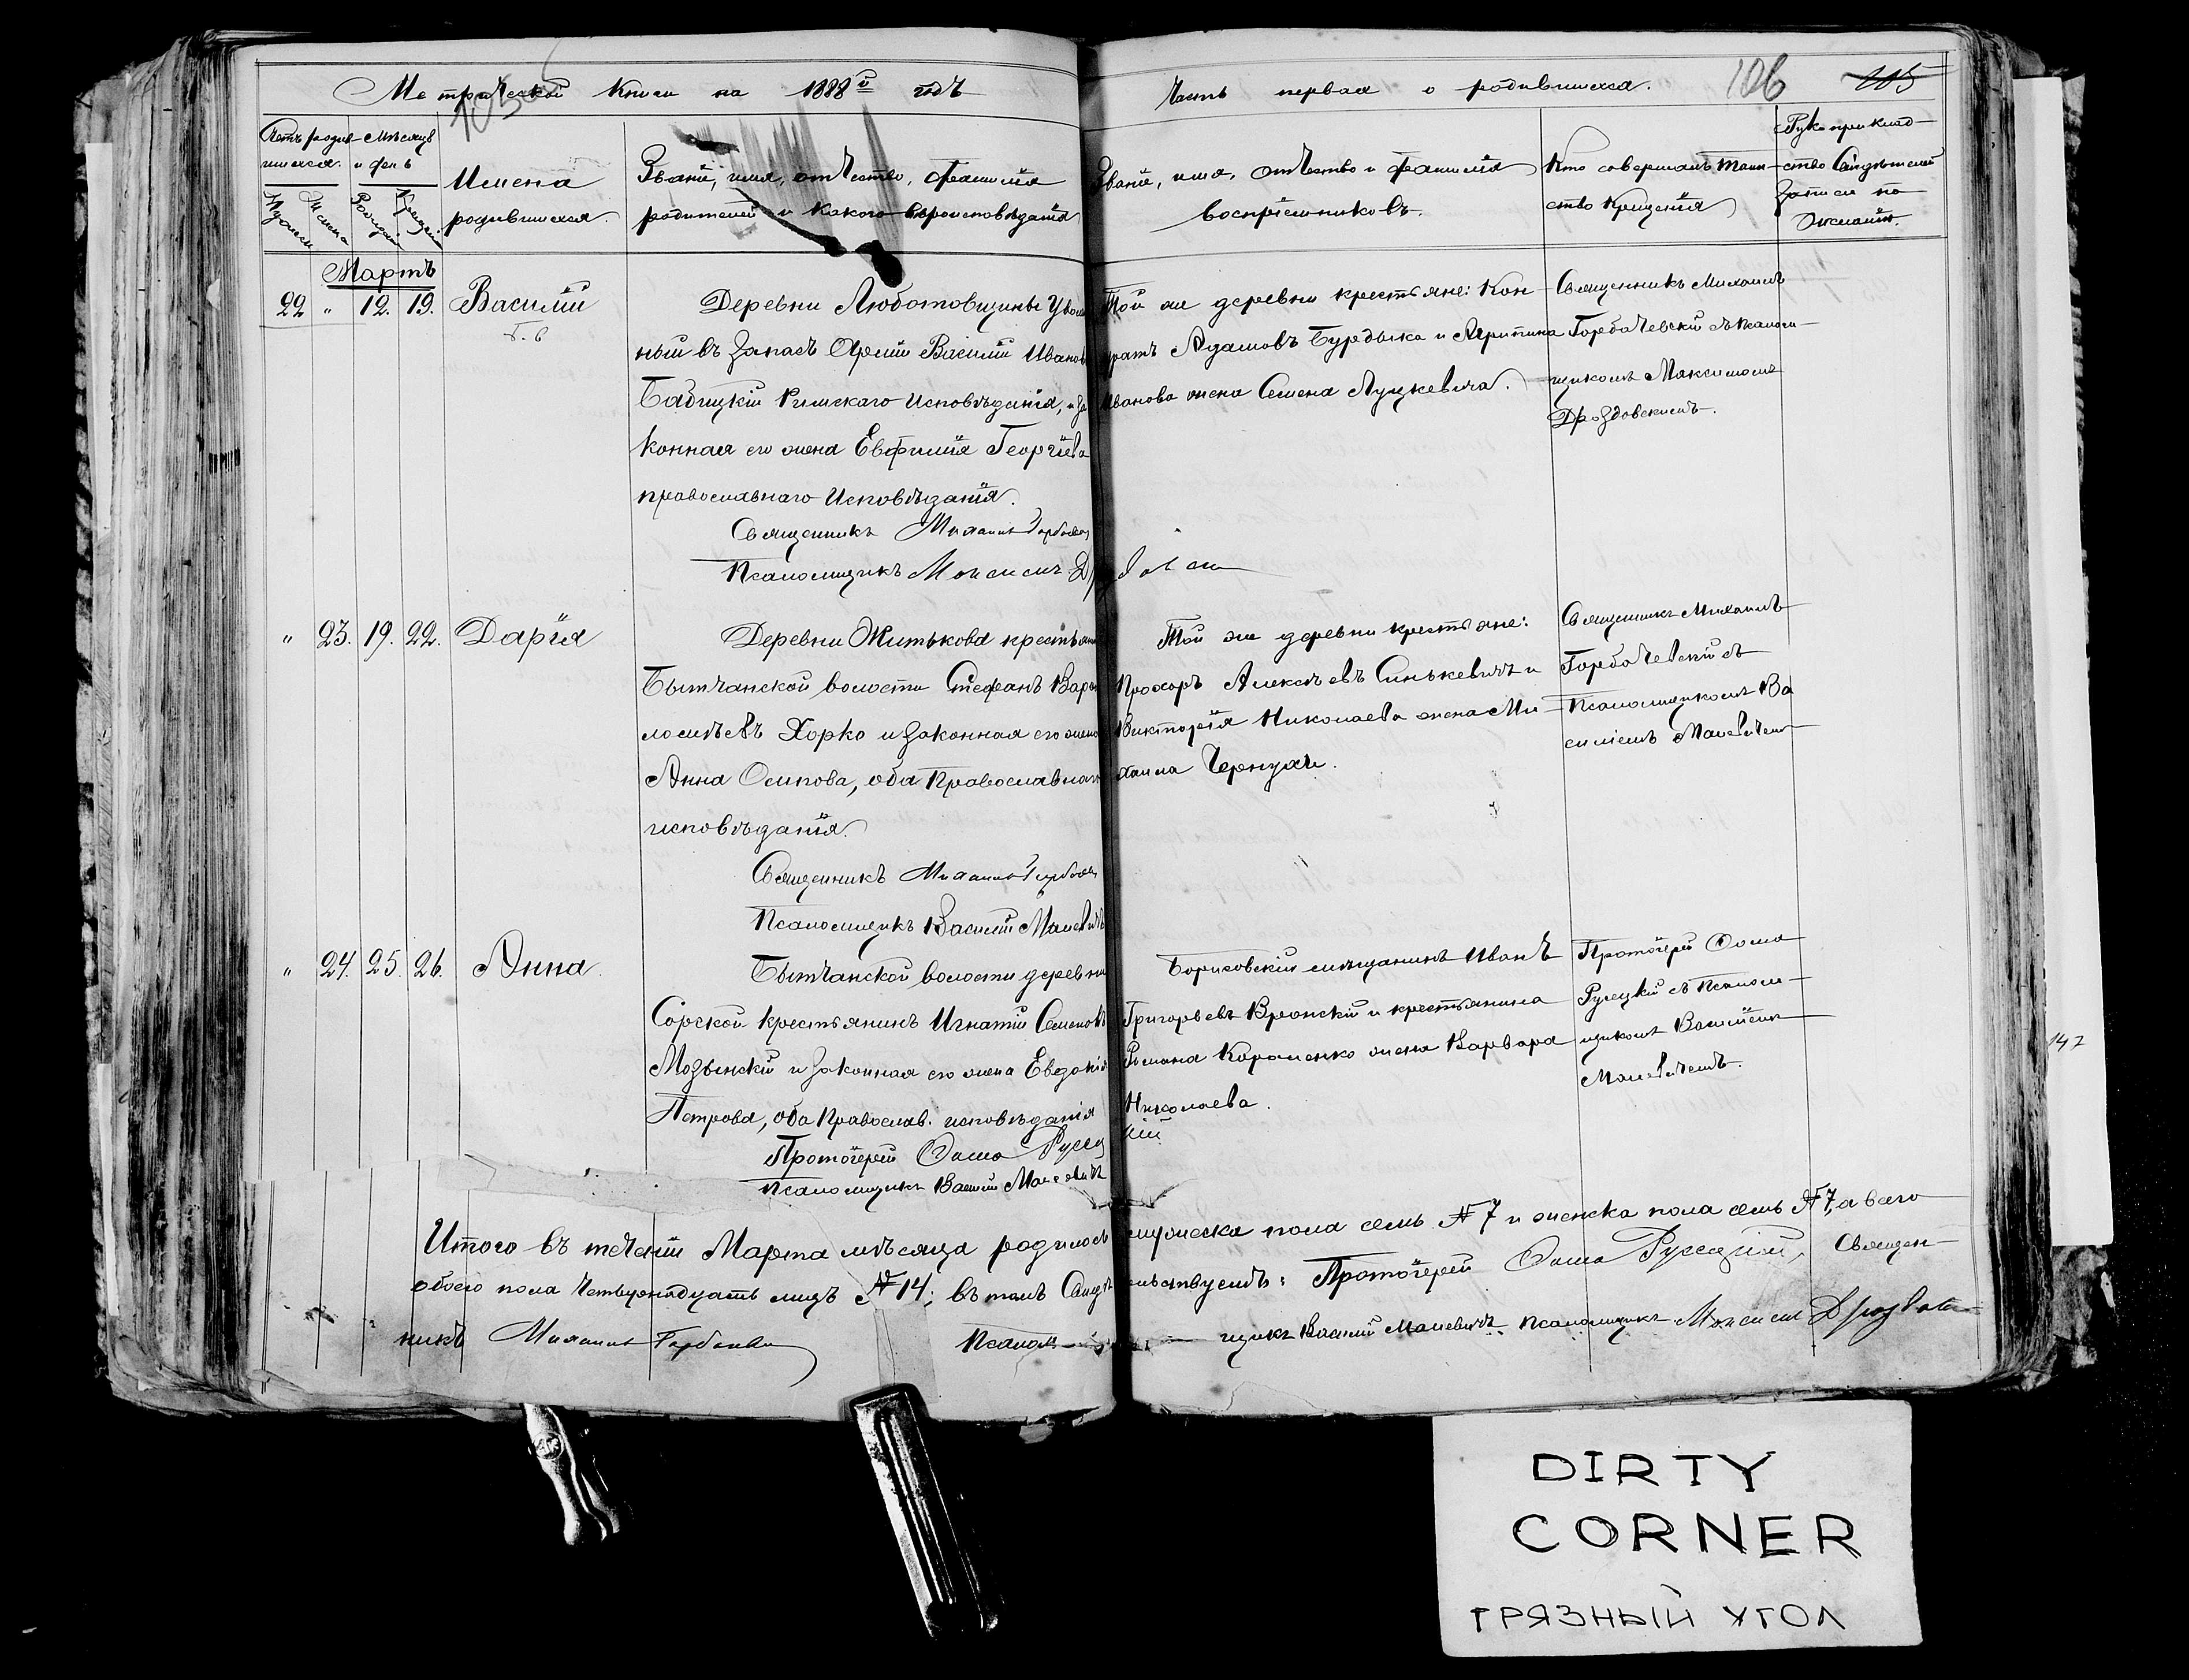 Метрической книги на 1888й годъ
Часть первая о родившихся.
106
105
Счетъ родив-
шихся.
Мѣсяцъ
и день
Мужеска
Женска
Рожденія
Крещенія
Имена
родившихся.
Званіе, имя, отчество, фамилія
родителей и какого вѣроисповѣданія
Званіе, имя, отчество и фамилія
воспріемниковъ.
Кто совершалъ таин-
ство крещенія
Рукоприклад-
ство свидѣтелей
записи по
желанію.
Мартъ
22 " 12. 19. Василій
Деревни Любатовщины Уволен
ный въ запасъ Арміи Василій Ивановъ
Бабицкій Римскаго Исповѣданія, и за
конная его жена Евфимія Георгіева
православнаго Исповѣданія.
Священникъ Михаилъ Горбачев
Псаломщикъ Максимъ Дроздовскі
Той же деревни крестьяне: Кон-
дратъ Адамовъ Бурдыка и Агрипина
Иванова жена Семена Луцкевича.
Священникъ Михаилъ
Горбачевскій съ псалом-
щикомъ Максимомъ
Дроздовскимъ.
" 23. 19. 22. Дарія
Деревни Житькова крестьян
Бытчанской волости Стефанъ Варѳо
ломѣевъ Хорко и законная его жена
Анна Осипова, оба Православнаго
исповѣданія.
Священникъ Михаилъ Горбачев
Псаломщикъ Василій Малевичъ
Той же деревни крестьяне:
Прохоръ Алексѣевъ Синькевичъ и
Викторія Николаева жена Ми-
хаила Чернухи.
Священникъ Михаилъ
Горбачевскій съ
Псаломщикомъ Ва
силіемъ Малевичемъ
" 24. 25. 26. Анна.
Бытчанской волости деревни
Сорской крестьянинъ Игнатій Семеновъ
Мозынскій и законная его жена Евдокія
Петрова, оба Православ. исповѣданія
Протоіерей Ѳома Русецкій
Псаломщикъ Василій Малевичъ
Борисовскій мѣщанинъ Иванъ
Григорьевъ Вронскій и крестьянина
Романа Короленко жена Варвара
Николаева.
Протоіерей Ѳома
Русецкій съ псалом-
щикомъ Василіемъ
Малевичемъ.
147
Итого въ теченіи Марта мѣсяца родилось мужеска пола семь № 7 и женска пола семь № 7, а всего
обоего пола четырнадцать лицъ № 14; въ томъ Свидѣтельствуемъ: Протоіерей Ѳома Русецкій, Священ-
никъ Михаилъ Горбачевскі Псалом- щикъ Василій Малевичъ. Псаломщикъ Максимъ Дроздовскі
DIRTY
CORNER
ГРЯЗНЫЙ УГОЛ